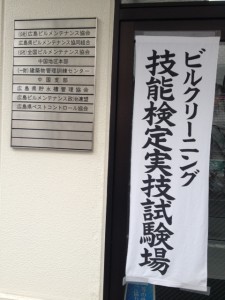 (社)広島ビルメンテナンス協会
広島県ビルメンテナンス協同組合
(社)全国ビルメンテナンス協会
中国地区本部
(一財)建築物管理訓練センター
中国支部
広島県貯水槽管理協会
広島県ビルメンテナンス政治連盟
広島県ペストコントロール協会
ビルクリーニング
技能検定実技試験場